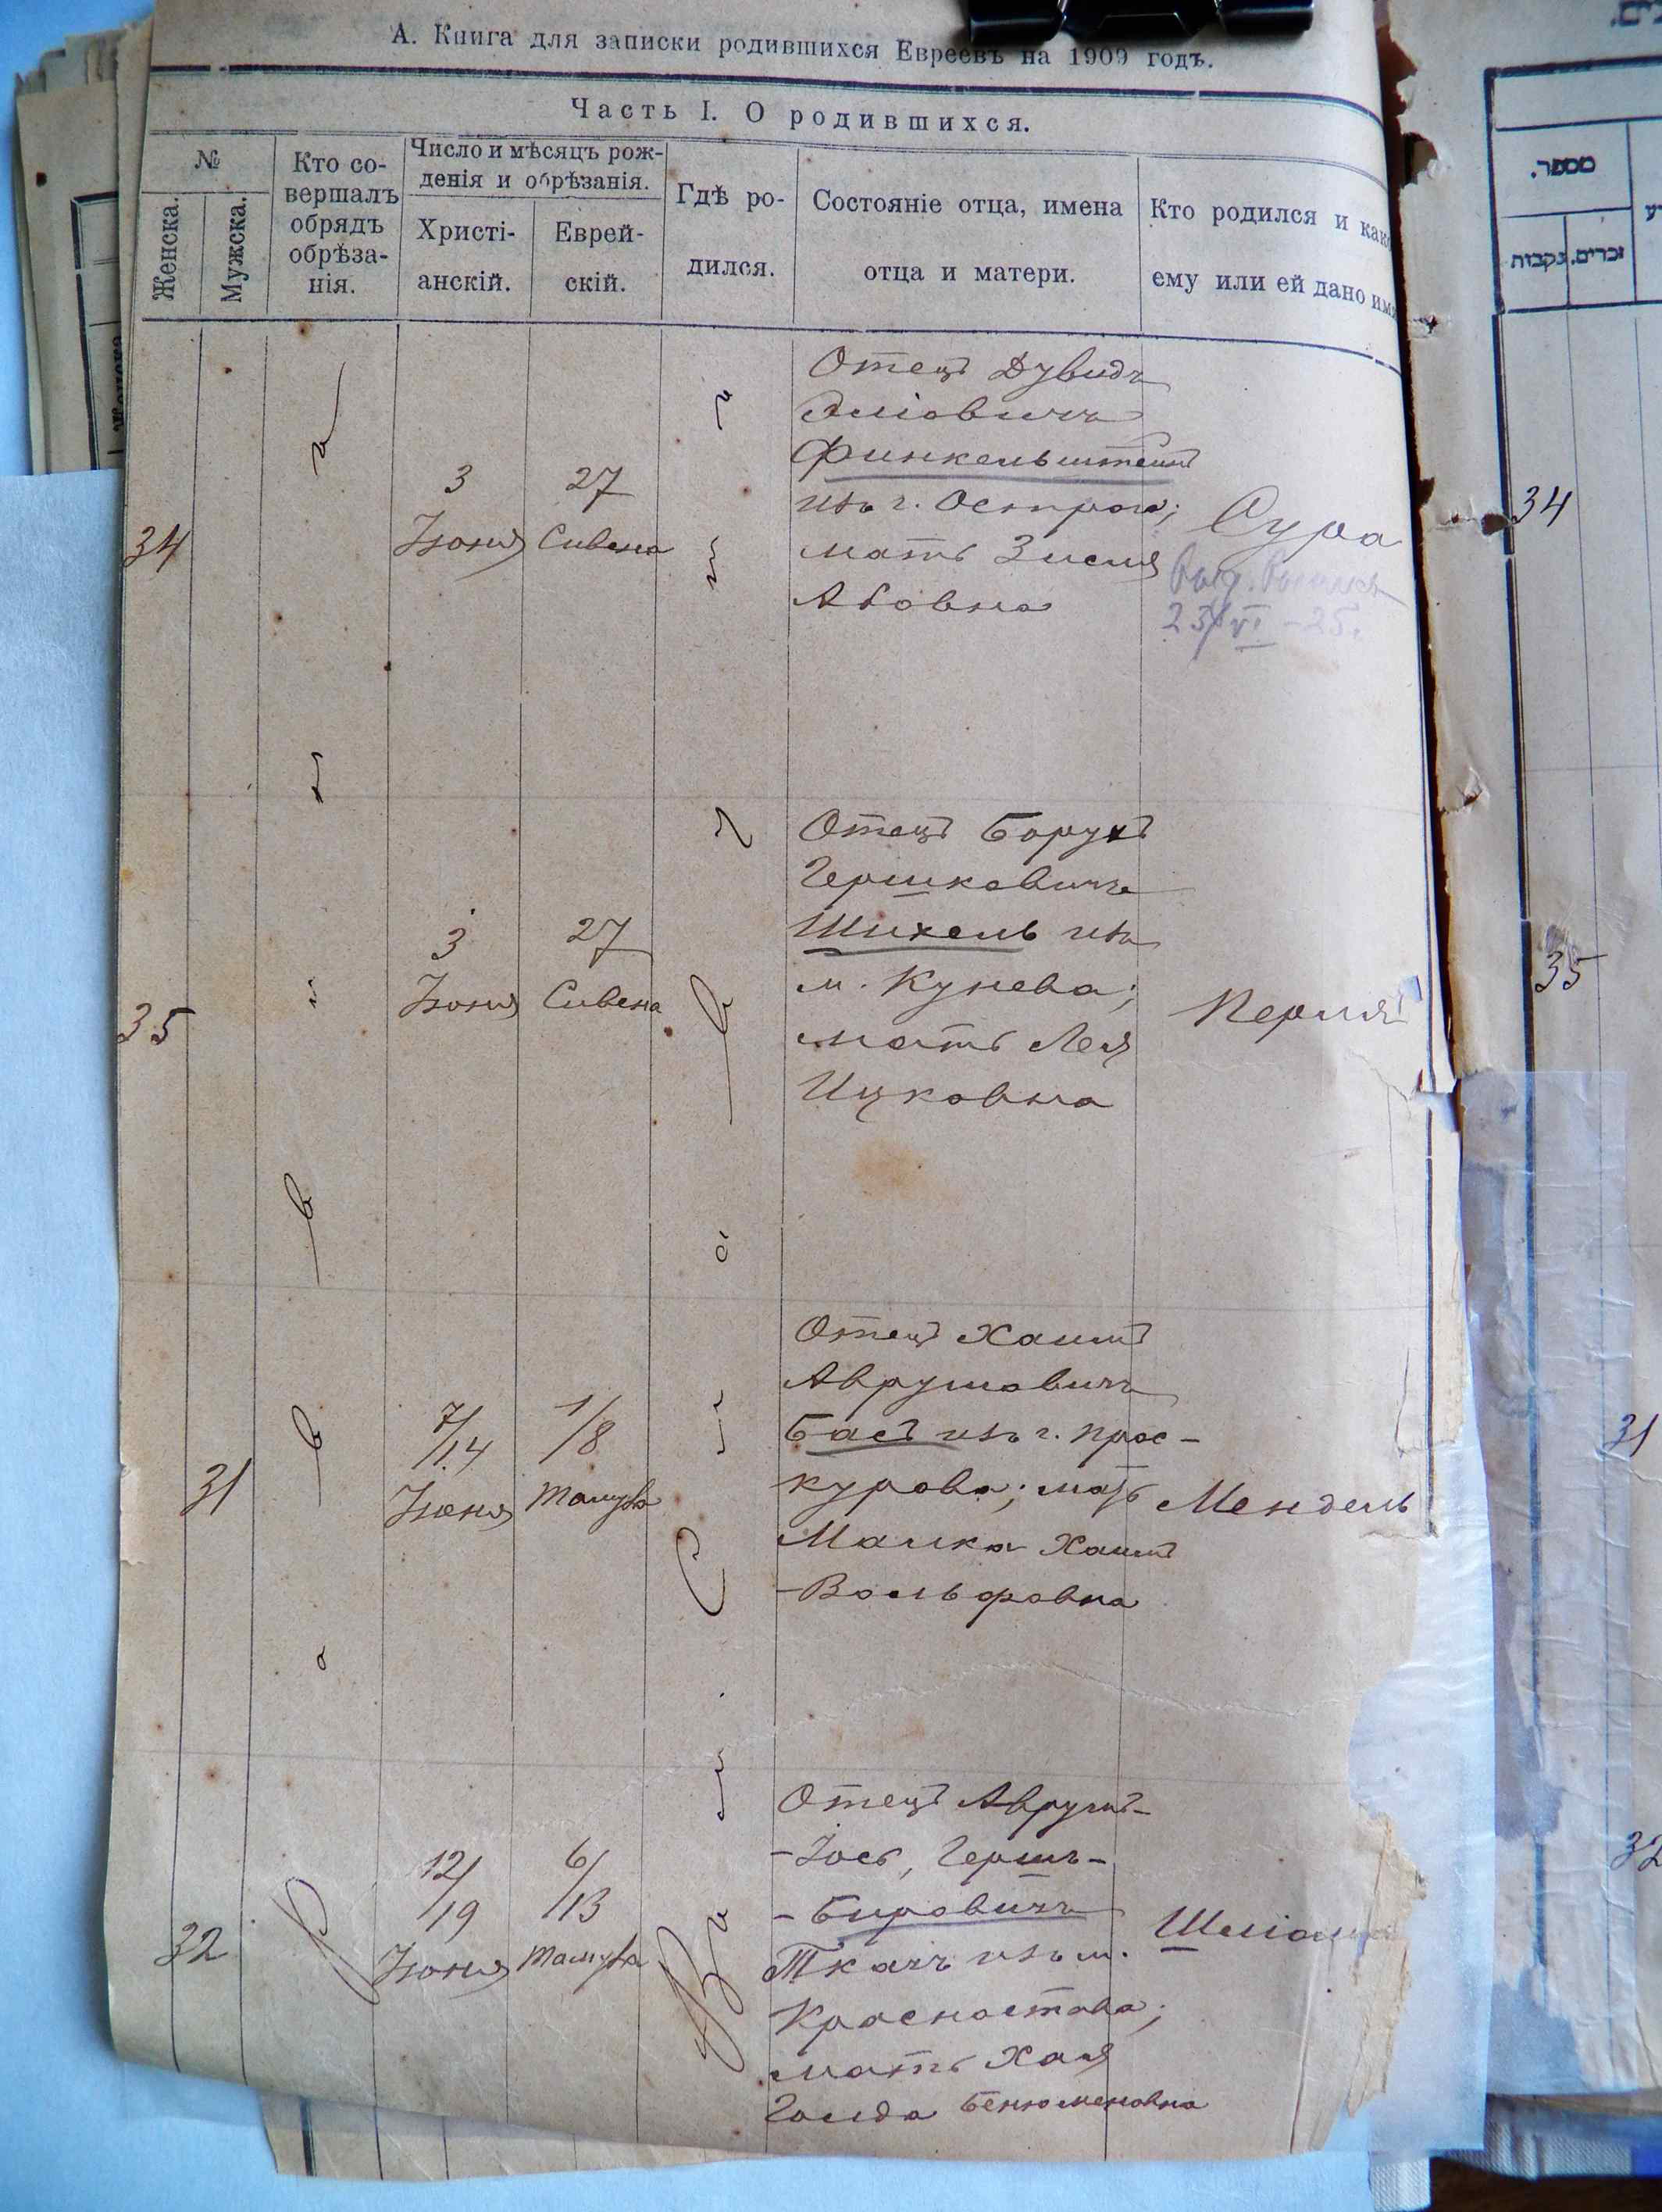 А. Книга для записки родившихся Евреевъ на 1909 годъ.
Часть I. О родившихся.
№
Женска.
Мужска.
Кто со-
вершалъ
обрядъ
обрѣза-
нія.
Число и мѣсяцъ рож-
денія и обрѣзанія.
Христі-
анскій.
Еврей-
скій.
Гдѣ ро-
дился.
Состояніе отца, имена
отца и матери.
Кто родился и како
ему или ей дано имя
34
3
Іюня
27
Сивена
Отецъ Дувидъ
Эліовичъ
Финкельштейнъ
изъ г. Острога;
мать Зисля
Абовна
Сура
35
3
Іюня
27
Сивена
Отецъ Борухъ
Гершковичъ
Шихель изъ
м. Кунева;
мать Лея
Ицковна
Перля
31
7/14
Іюня
1/8
Тамуза
Отецъ Хаимъ
Аврумовичъ
Басъ изъ г. Прос-
курова; мать
Малка Хаимъ
-Вольфовна
Мендель
32
12/19
Іюня
6/13
Тамуза
Отецъ Аврумъ-
-Іось, Гершъ-
-Беровичъ
Ткачъ изъ м.
Красностава;
мать Хая
Голда Бенюменовна
מספר.
זכרים.
נקבות
34
35
31
32